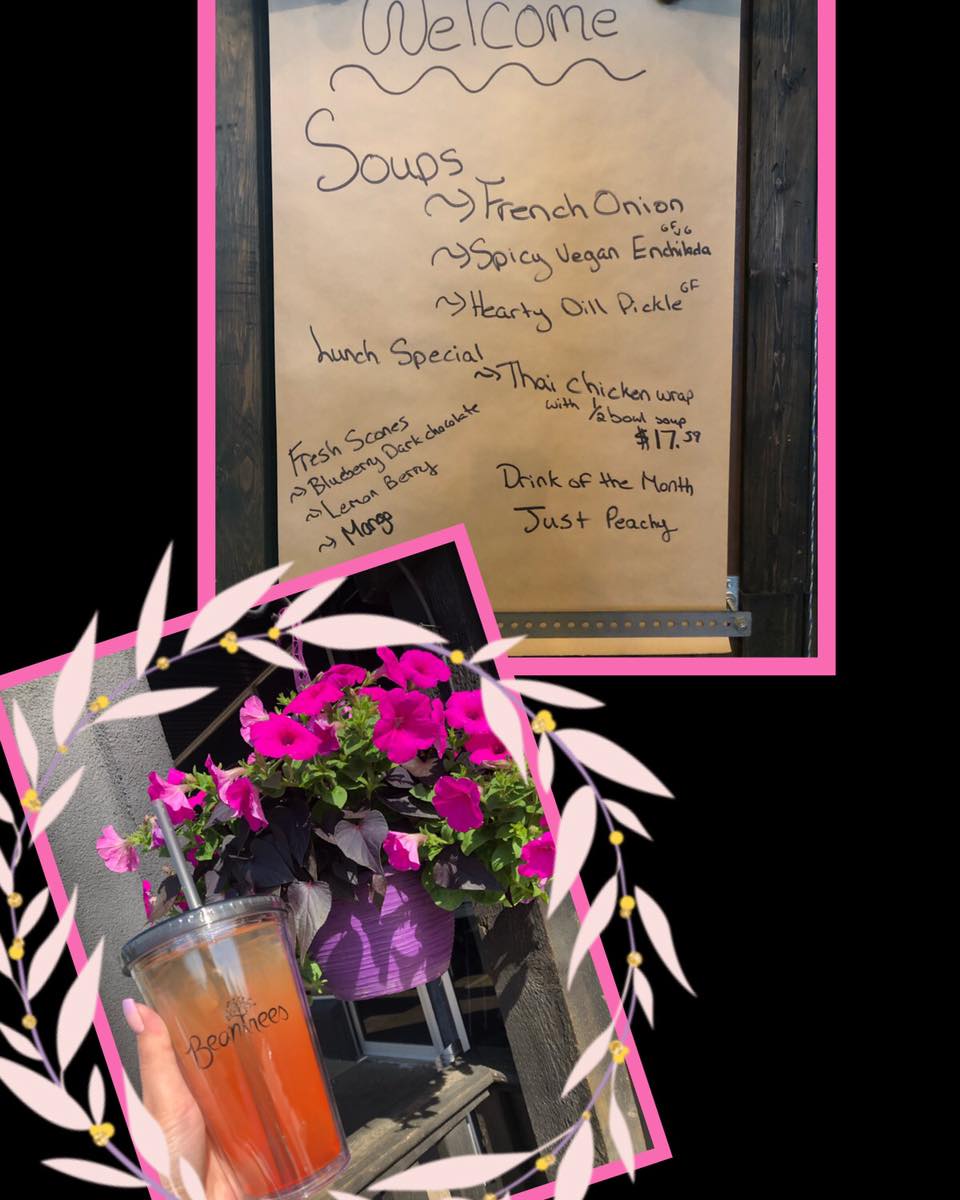 Welcome
Soups
French Onion
GF
Spicy Vegan Enchilada
Hearty Dill Pickle GF
Lunch Special
Thai chicken wrap
with 1/2 bowl soup
$17.59
Fresh Scones
Blueberry Dark chocolate
Lemon Berry
Mango
Drink of the Month
Just Peachy
Beantrees